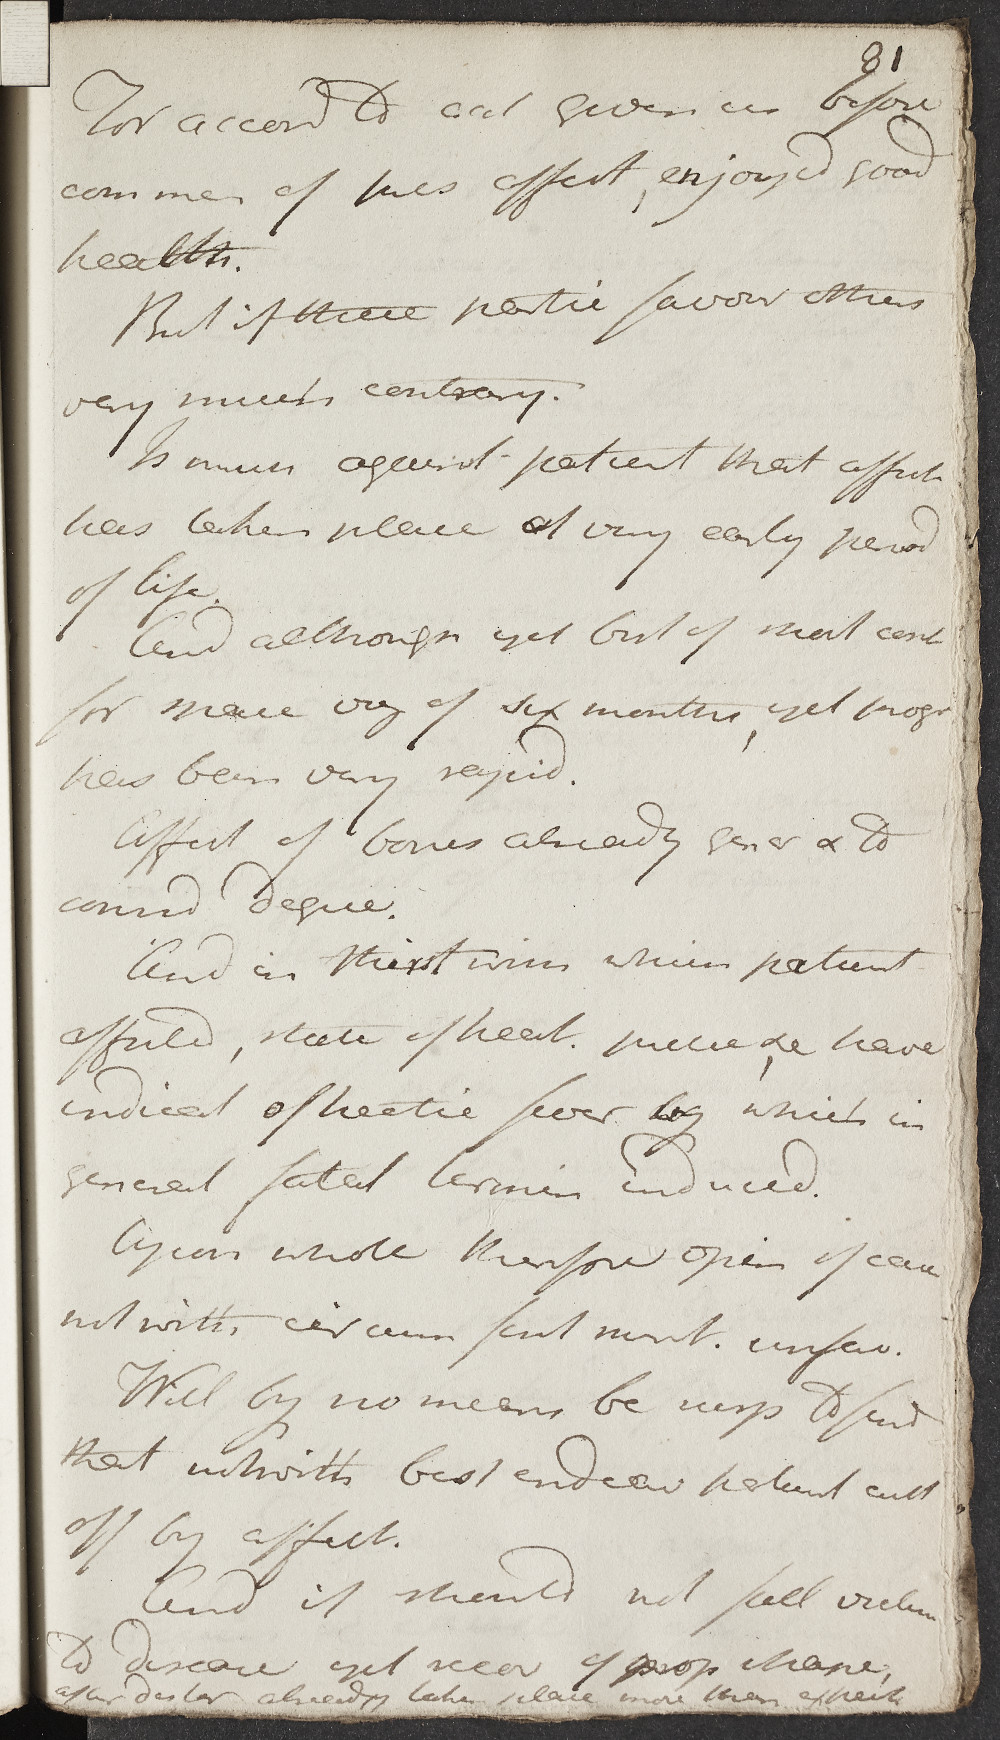 81
For accord to acct given us before
commen of pres affect, enjoyed good
health.
But if these partic favour others
very much contrary.
Is much against patient that affect
has taken place at very early period
of life.
And although yet but of short cont
for space only of six months, yet progr
has been very rapid.
Affect of bones already gener & to
consid degree.
And in thirst with which patient
afflictd, state of heat. pulse &c have
indicat of hectic fever by which in
general fatal termin induced.
Upon whole therefore opin of case
notwith circum not unfav.
Will by no means be surp to find
that notwith best endeav patient cutt
off by affect.
And if should not fall victim
to disease yet recov of prop shape,
after distor already taken place more than expect